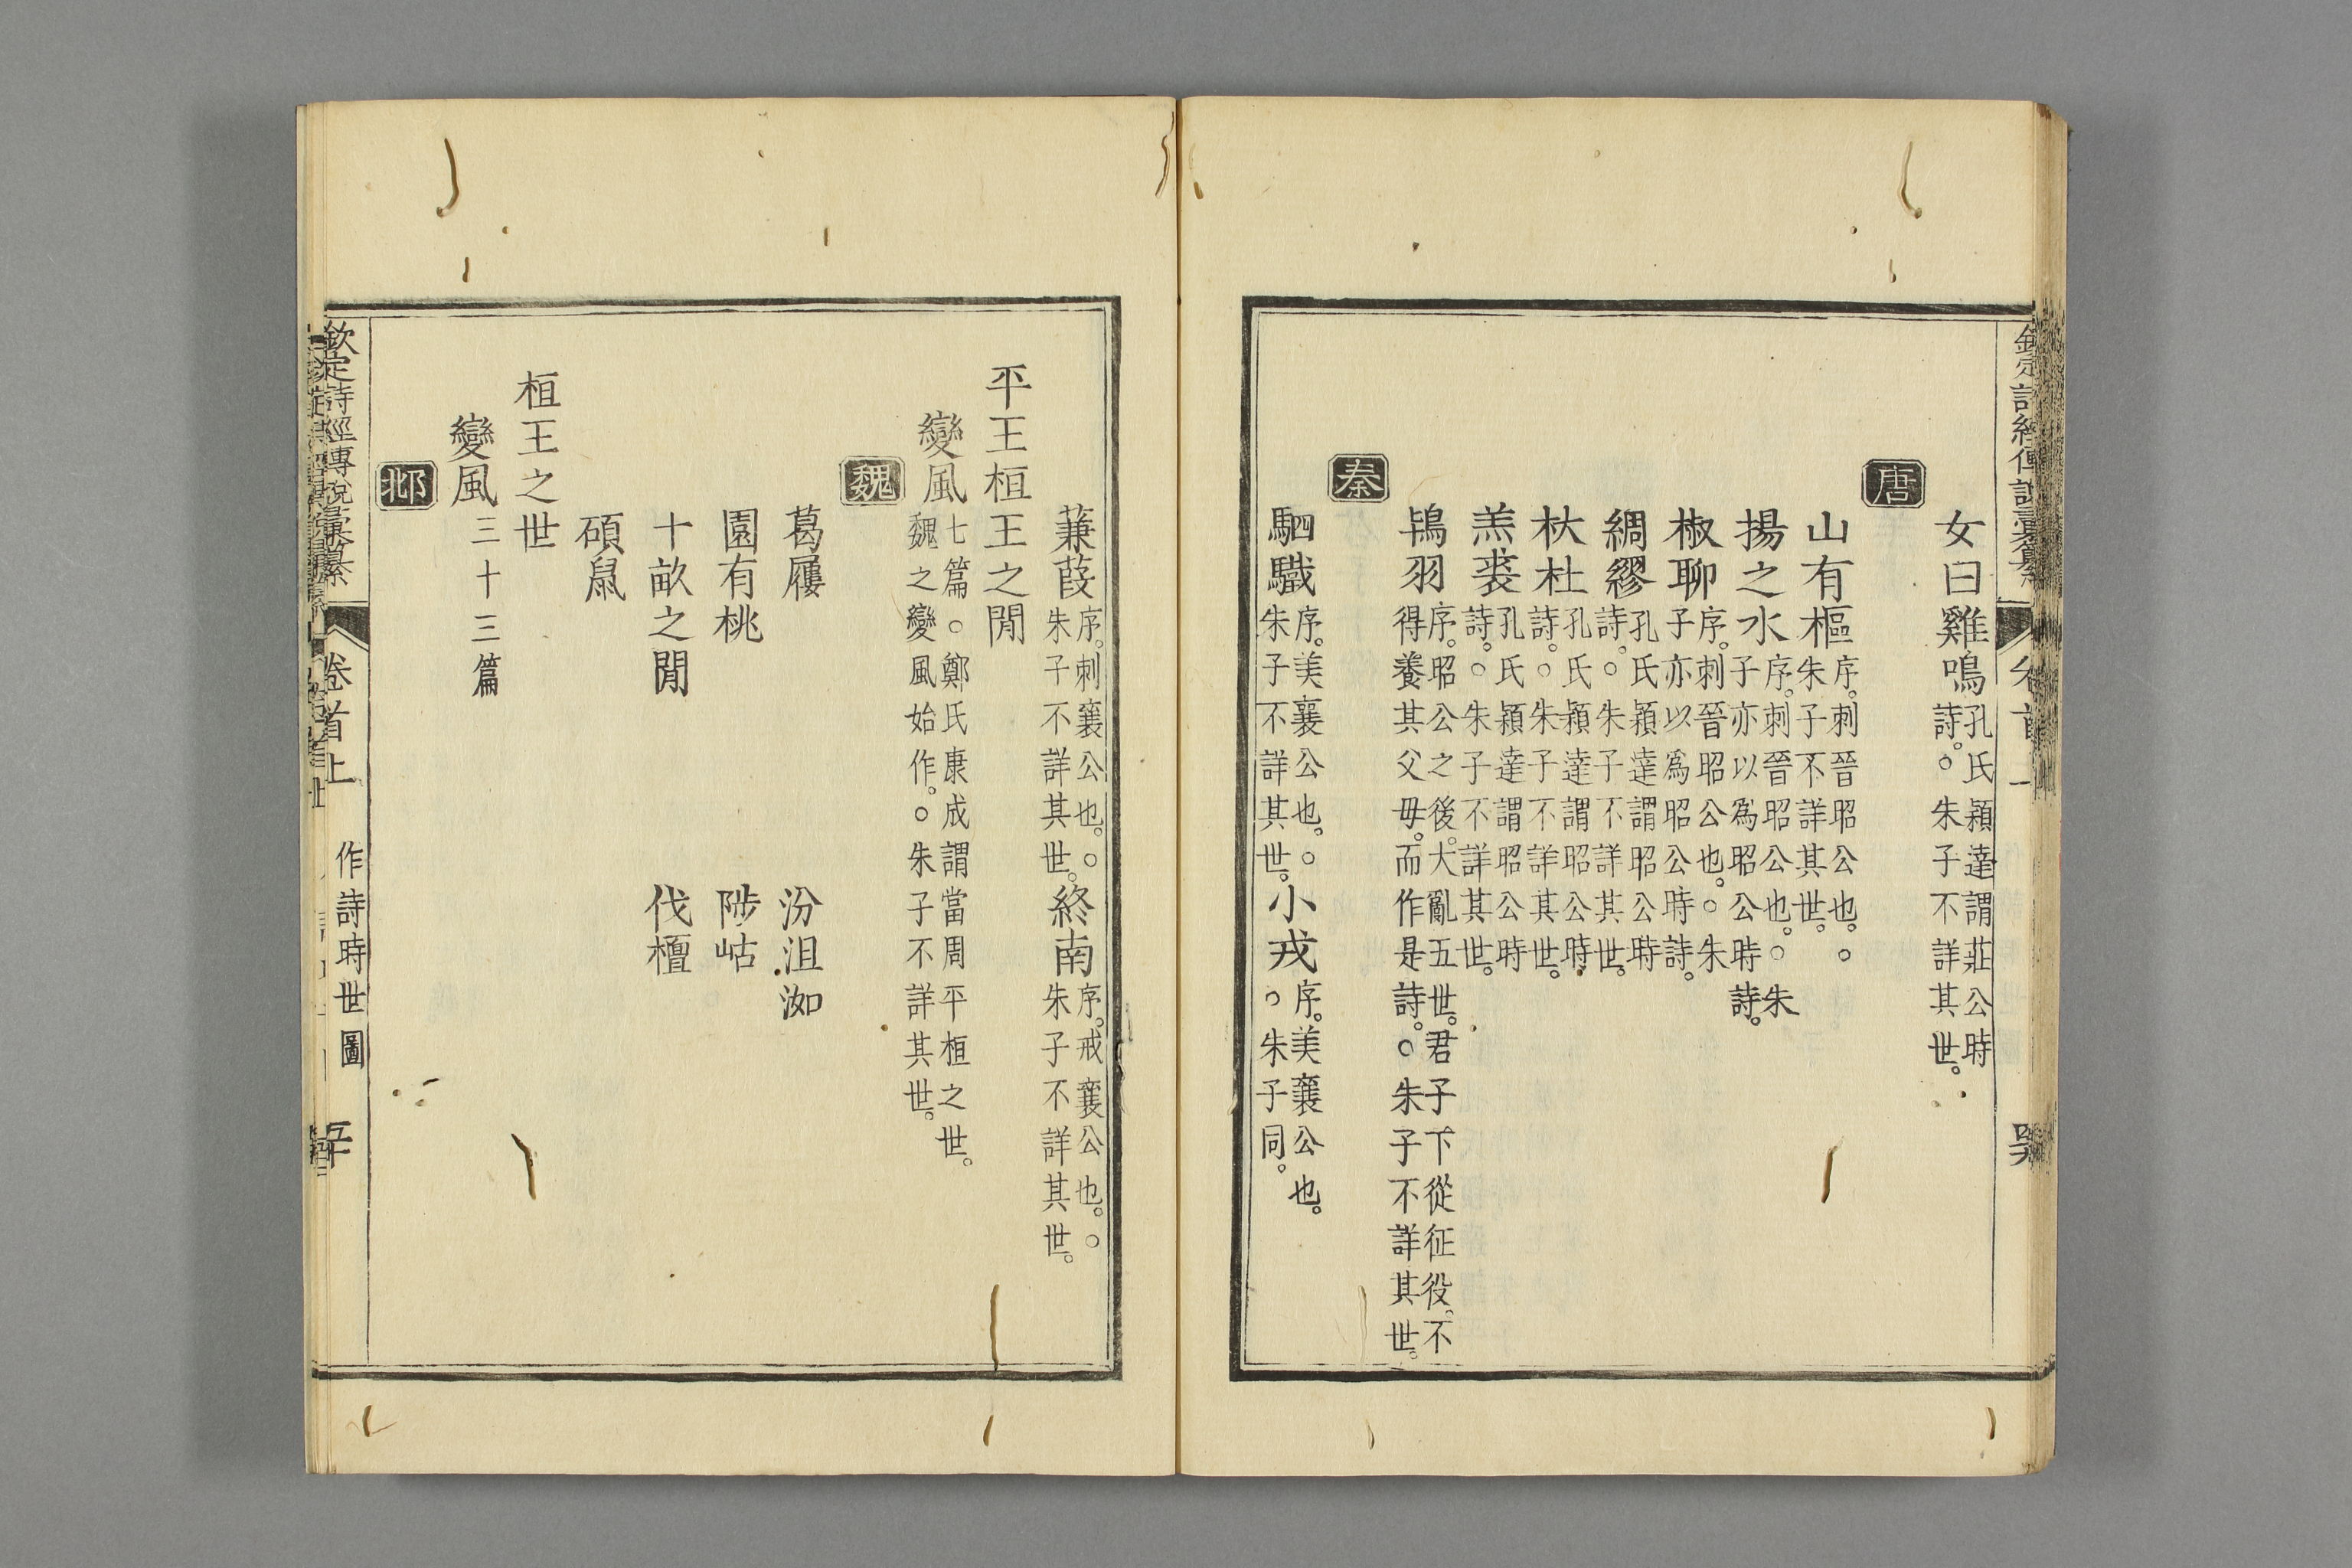 女曰雞鳴孔氏穎達謂莊公時詩。○朱子不詳其世。
唐
山有樞序。刺晉昭公也。○朱子不詳其世。
揚之水序。刺晉昭公也。○朱子亦以為昭公時詩。
椒聊序。刺晉昭公也。○朱子亦以為昭公時詩。
綢繆孔氏穎達謂昭公時詩。○朱子不詳其世。
杕杜孔氏穎達謂昭公時詩。○朱子不詳其世。
羔裘孔氏穎達謂昭公時詩。○朱子不詳其世。
鴇羽序。昭公之後。大亂五世。君子下從征役。不得養其父母。而作是詩。○朱子不詳其世。
秦
駟驖序。美襄公也。○朱子不詳其世。小戎序。美襄公也。○朱子同。
蒹葭序。刺襄公也。○朱子不詳其世。終南序。戒襄公也。○朱子不詳其世。
平王桓王之閒
變風七篇。○鄭氏康成謂當周平桓之世。魏之變風始作。○朱子不詳其世。
魏
葛屨 汾沮洳
園有桃 陟岵
十畝之閒 伐檀
碩鼠
桓王之世
變風三十三篇
邶
欽定詩經傳說彙纂 卷首上 作詩時世圖 五十